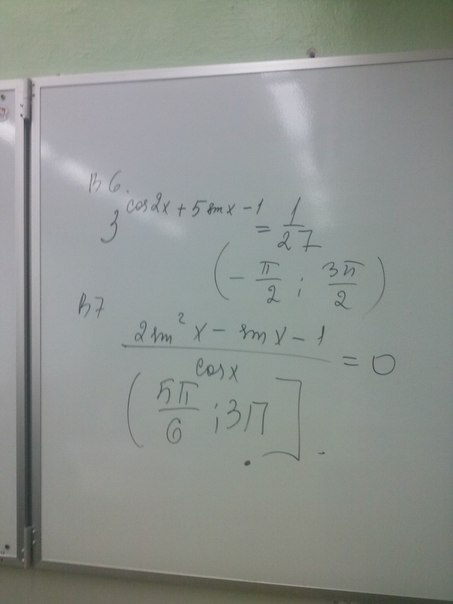 В 6.
3^{cos2x + 5 sinx - 1} = 1/27
(-π/2 ; 3π/2)
В7
(2 sin² x - sinx - 1)/cosx = 0
(5π/6 ; 3π].